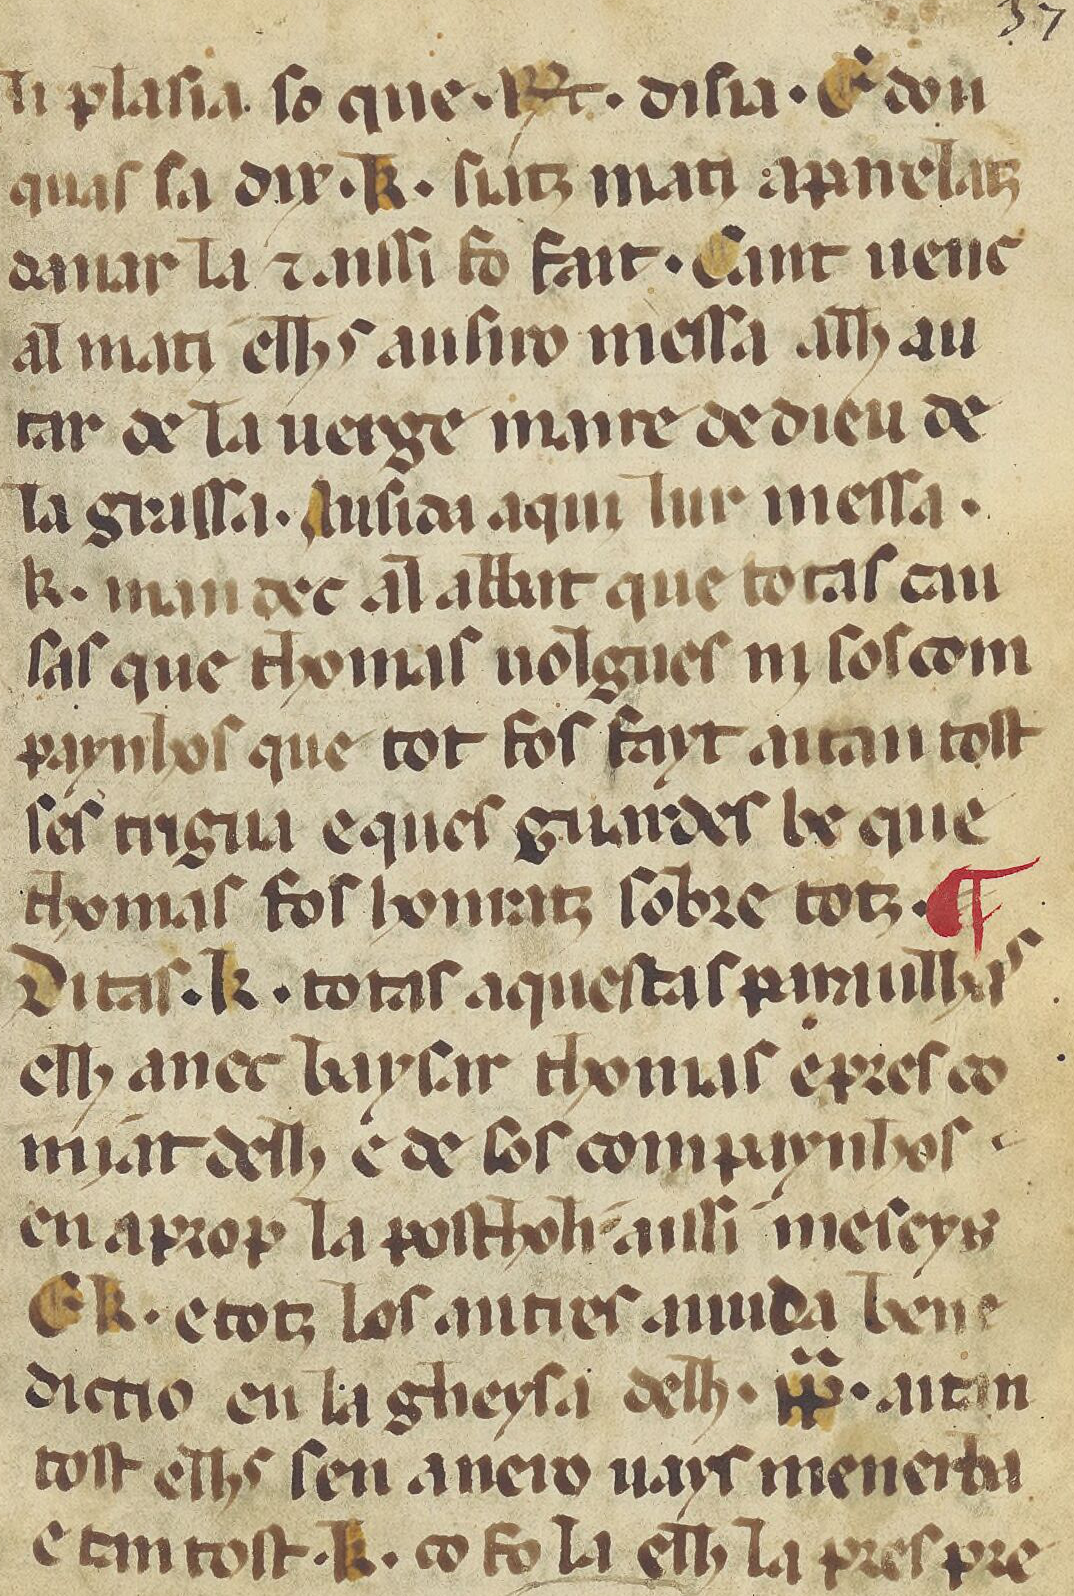 37
li plasia so que · Rt · disia · E don
quas sa dix · k · siatz mati aparelatz
danar la ⁊ aissi fo fait · Cant uenc
al mati elhs ausiro messa alh au
tar de la uerge maire de dieu de
la grassa · Ausida aqui lur messa ·
k · mandec al abbat que totas cau
sas que thomas uolgues ni sos com
paynhos que tot fos fayt aitan tost
ses trigua e ques guardes be que
thomas fos honratz sobre totz · ¶
Ditas · k · totas aquestas paraulhas
elh anec baysar thomas e pres co
miat delh e de sos compaynhos
en aprop la postholi aissi meseys
E k · e totz los autres auuda bene
dictio en la gheysa delh · aitan
tost elhs sen anero uays menerba
e tan tost · k · co fo la elh la pres pre